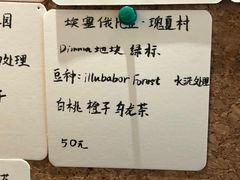 埃塞俄比亚·瑰夏村
Dimma 地块 绿标
豆种: illubabor Forest 水洗处理
白桃 橙子 乌龙茶
50元
园
处理